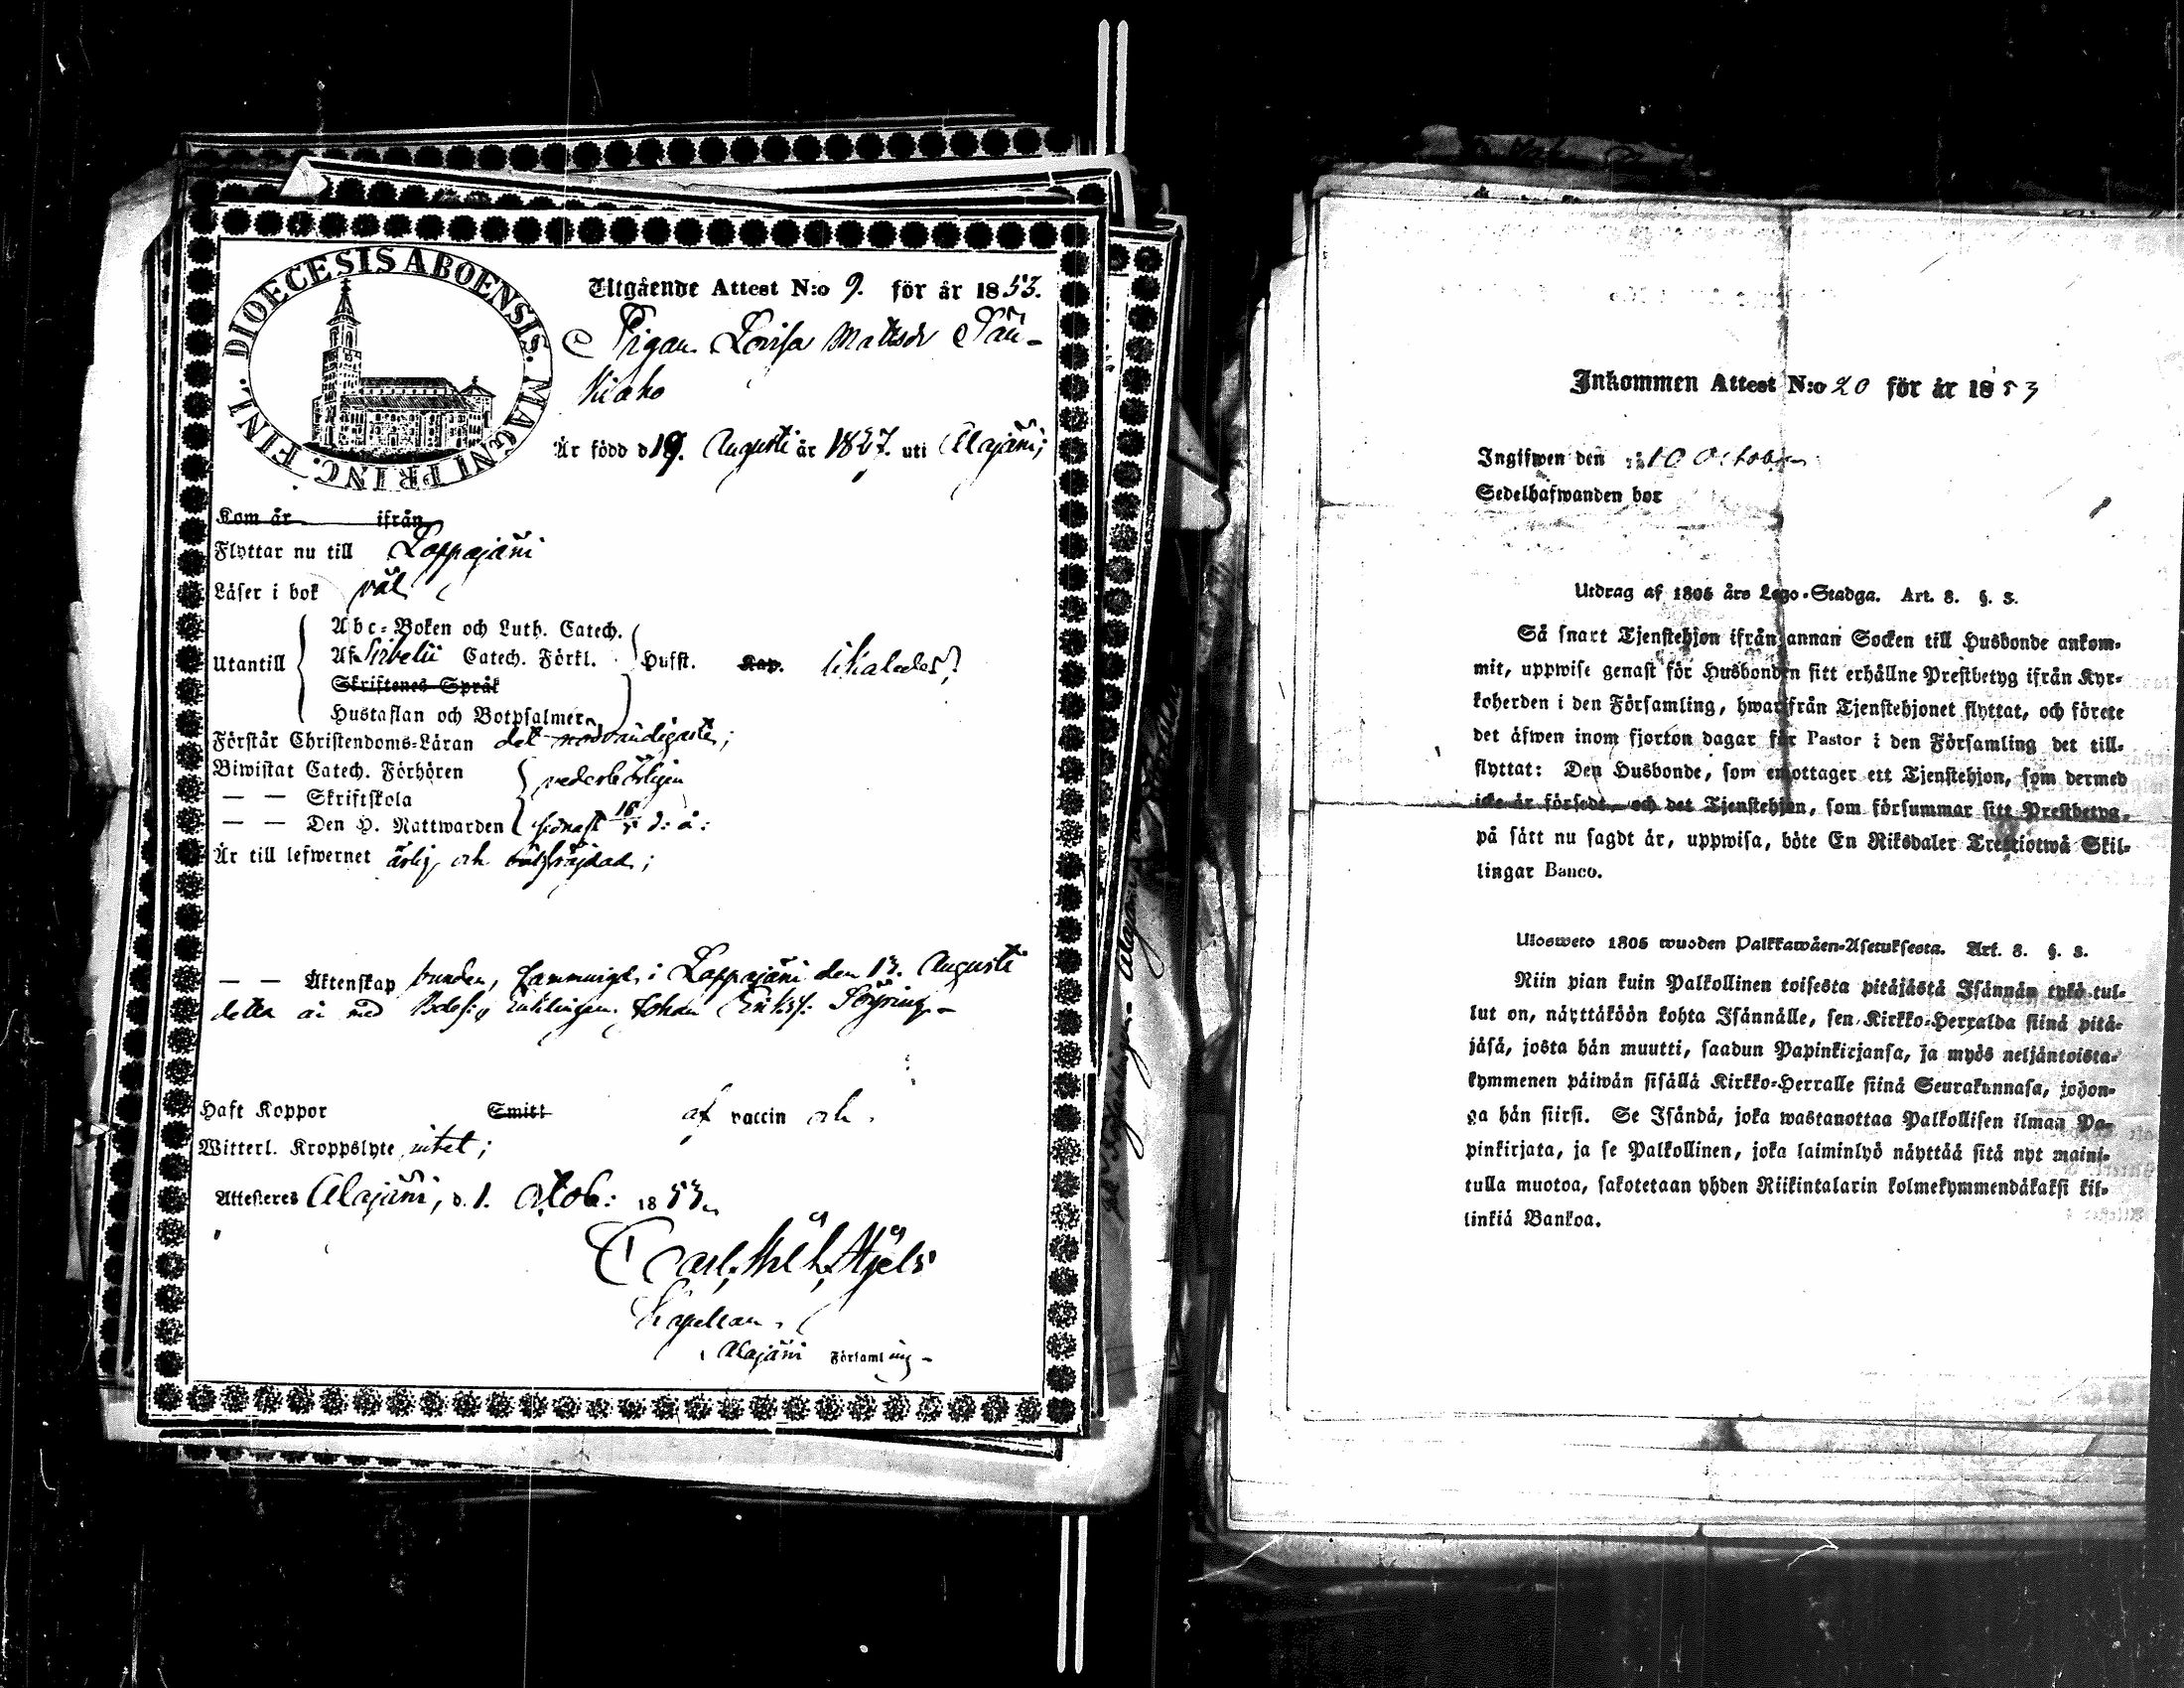 DIOECESIS ABOENSIS. MAGNI PRINC. FINL.
Utgående Attest N:o 9. för år 1853.
Pigan Lovisa Mattsdr
Är född d 19. Augusti är 1827. uti Alajärvi;
Kom är ifrån
Flyttar nu till Lappajärvi
Läser i bok väl
Utantill
Abc-Boken och Luth. Catech.
Af Sirbelii Catech. Förkl.
Skriftenes Språk
Hustaflan och Botpsalmer
Hufst. Kap. likaledes;
Förstår Christendoms-Läran det nödvändigaste;
Biwistat Catech. Förhören vederbörligen
— — Skriftskola
— — Den H. Nattwarden sednast d: å:
Är till lefwernet ärlig och välfräjdad;
— — Äktenskap bunden, i Lappajärvi den 13. Augusti
detta år med Enklingen Johan
Haft Koppor Smitt af vaccin och
Witterl. Kroppslyte intet;
Attesteras Alajärvi, d. 1. Octob: 1853
Carl
Kapellan
Alajärvi Församling
Inkommen Attest N:o 20 för år 1853
Ingifwen den 10 October
Sedelhafwanden bor
Utdrag af 1805 års Lego-Stadga. Art. 8. §. 3.
Så snart Tjenstehjon ifrån annan Socken till Husbonde ankom-
mit, uppwise genast för Husbonden sitt erhållne Prestbetyg ifrån Kyr-
koherden i den Församling, hwarifrån Tjenstehjonet flyttat, och förete
det äfwen inom fjorton dagar för Pastor i den Församling det till-
flyttat: Den Husbonde, som emottager ett Tjenstehjon, som dermed
icke är försedt, och det Tjenstehjon, som försummar sitt Prestbetyg,
på sätt nu sagdt är, uppwisa, böte En Riksdaler Trettiotwå Skil-
lingar Banco.
Ulosweto 1805 wuoden Palkkawäen-Asetuksesta. Art. 8. §. 3.
Niin pian kuin Palkollinen toisesta pitäjästä Isännän tykö tul-
lut on, näyttäköön kohta Isännälle, sen Kirkko-Herralda siinä pitä-
jäsä, josta hän muutti, saadun Papinkirjansa, ja myös neljäntoista-
kymmenen päiwän sisällä Kirkko-Herralle siinä Seurakunnasa, johon-
ga hän siirsi. Se Isändä, joka wastanottaa Palkollisen ilman Pa-
pinkirjata, ja se Palkollinen, joka laiminlyö näyttää sitä nyt maini-
tulla muotoa, sakotetaan yhden Riikintalarin kolmekymmendäkaksi kil-
linkiä Bankoa.